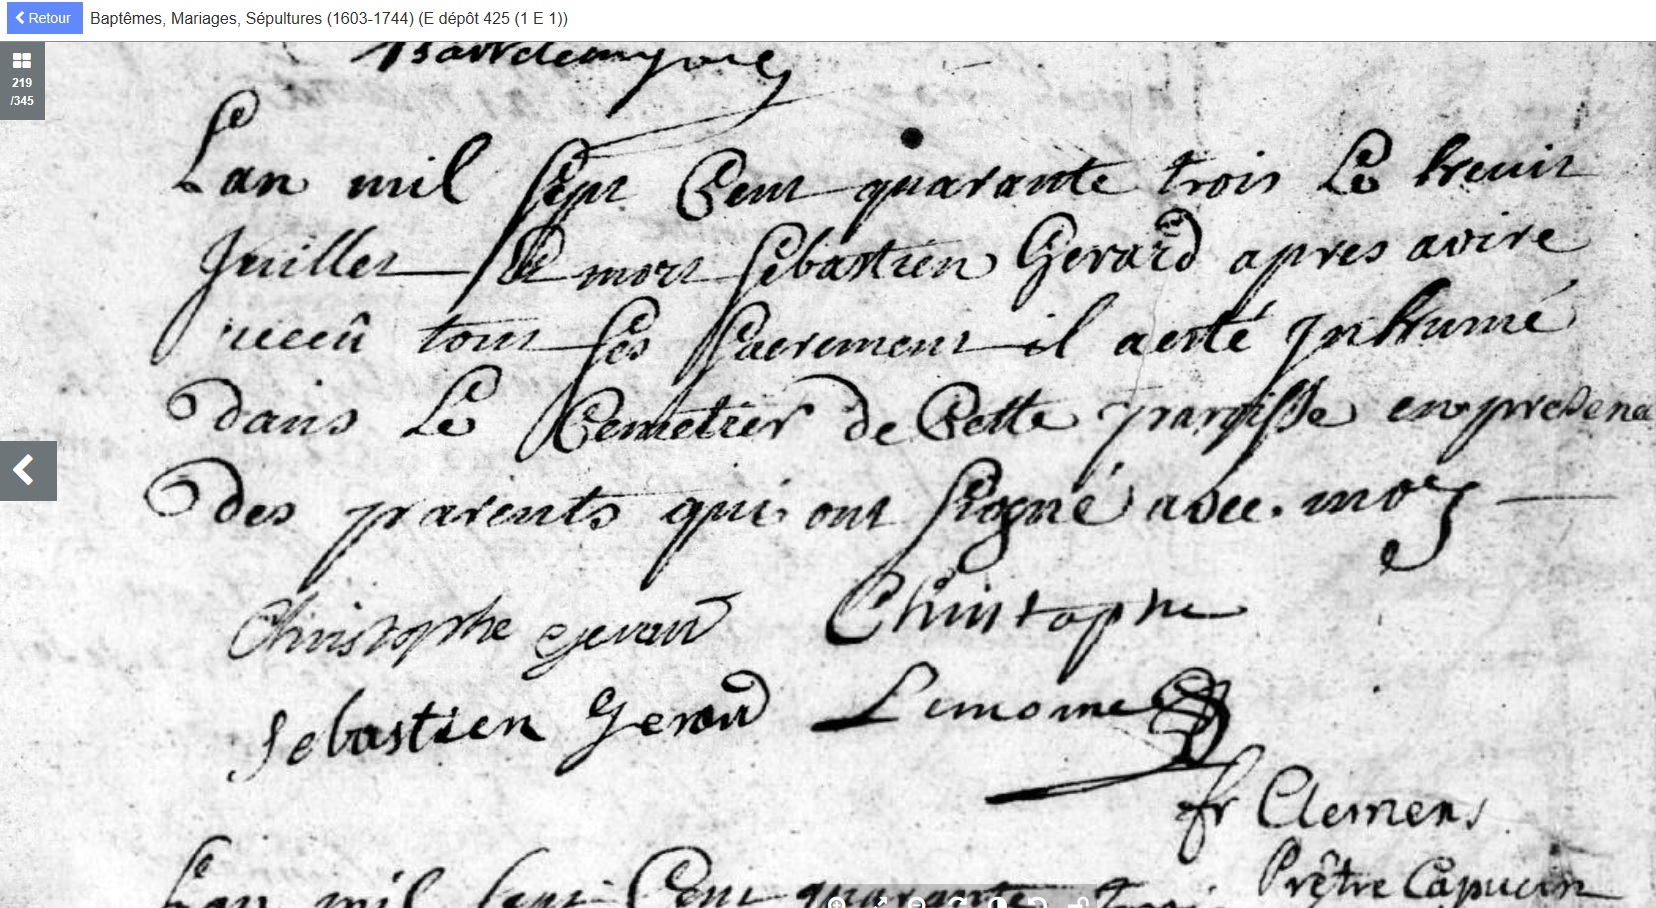 Retour Baptêmes, Mariages, Sépultures (1603-1744) (E dépôt 425 (1 E 1))
219
/345
Lan mil sept Cent quarante trois Le
Juillet mort sebastien Gerard apres avoire
receû tous ses sacrement il aesté Inhumé
dans Le Cemetier de Cette paroisse en presence
des parents qui ont signé avec moy
Christophe gerard Christophe
sebastien gerard Lemoine
fr Clemens
Prêtre Capucin
Lan mil sept Cent quarante trois